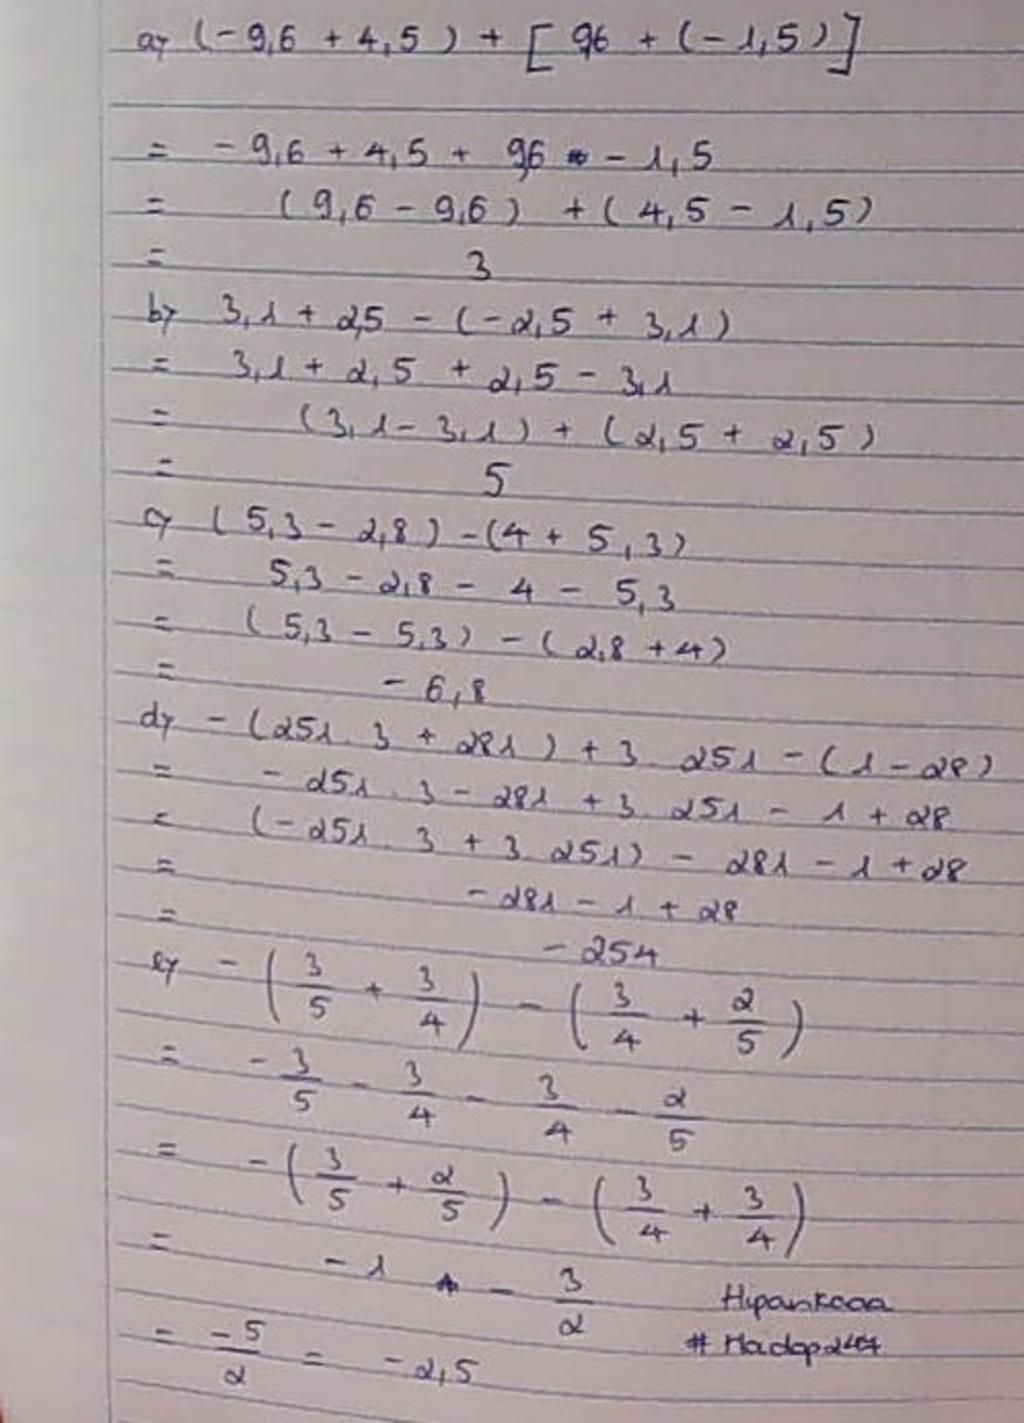 a, (-9,6 + 4,5) + [9,6 + (-1,5)]
= -9,6 + 4,5 + 9,6 - 1,5
= (9,6 - 9,6) + (4,5 - 1,5)
= 3
b, 3,1 + 2,5 - (-2,5 + 3,1)
= 3,1 + 2,5 + 2,5 - 3,1
= (3,1 - 3,1) + (2,5 + 2,5)
= 5
c, (5,3 - 2,8) - (4 + 5,3)
= 5,3 - 2,8 - 4 - 5,3
= (5,3 - 5,3) - (2,8 + 4)
= -6,8
d, -(251 . 3 + 281) + 3 . 251 - (1 - 28)
= -251 . 3 - 281 + 3 . 251 - 1 + 28
= (-251 . 3 + 3 . 251) - 281 - 1 + 28
= -281 - 1 + 28
= -254
e, -(3/5 + 3/4) - (3/4 + 2/5)
= -3/5 - 3/4 - 3/4 - 2/5
= -(3/5 + 2/5) - (3/4 + 3/4)
= -1 - 3/2
Hipankaaa
= -5/2 = -2,5
# Hadop247